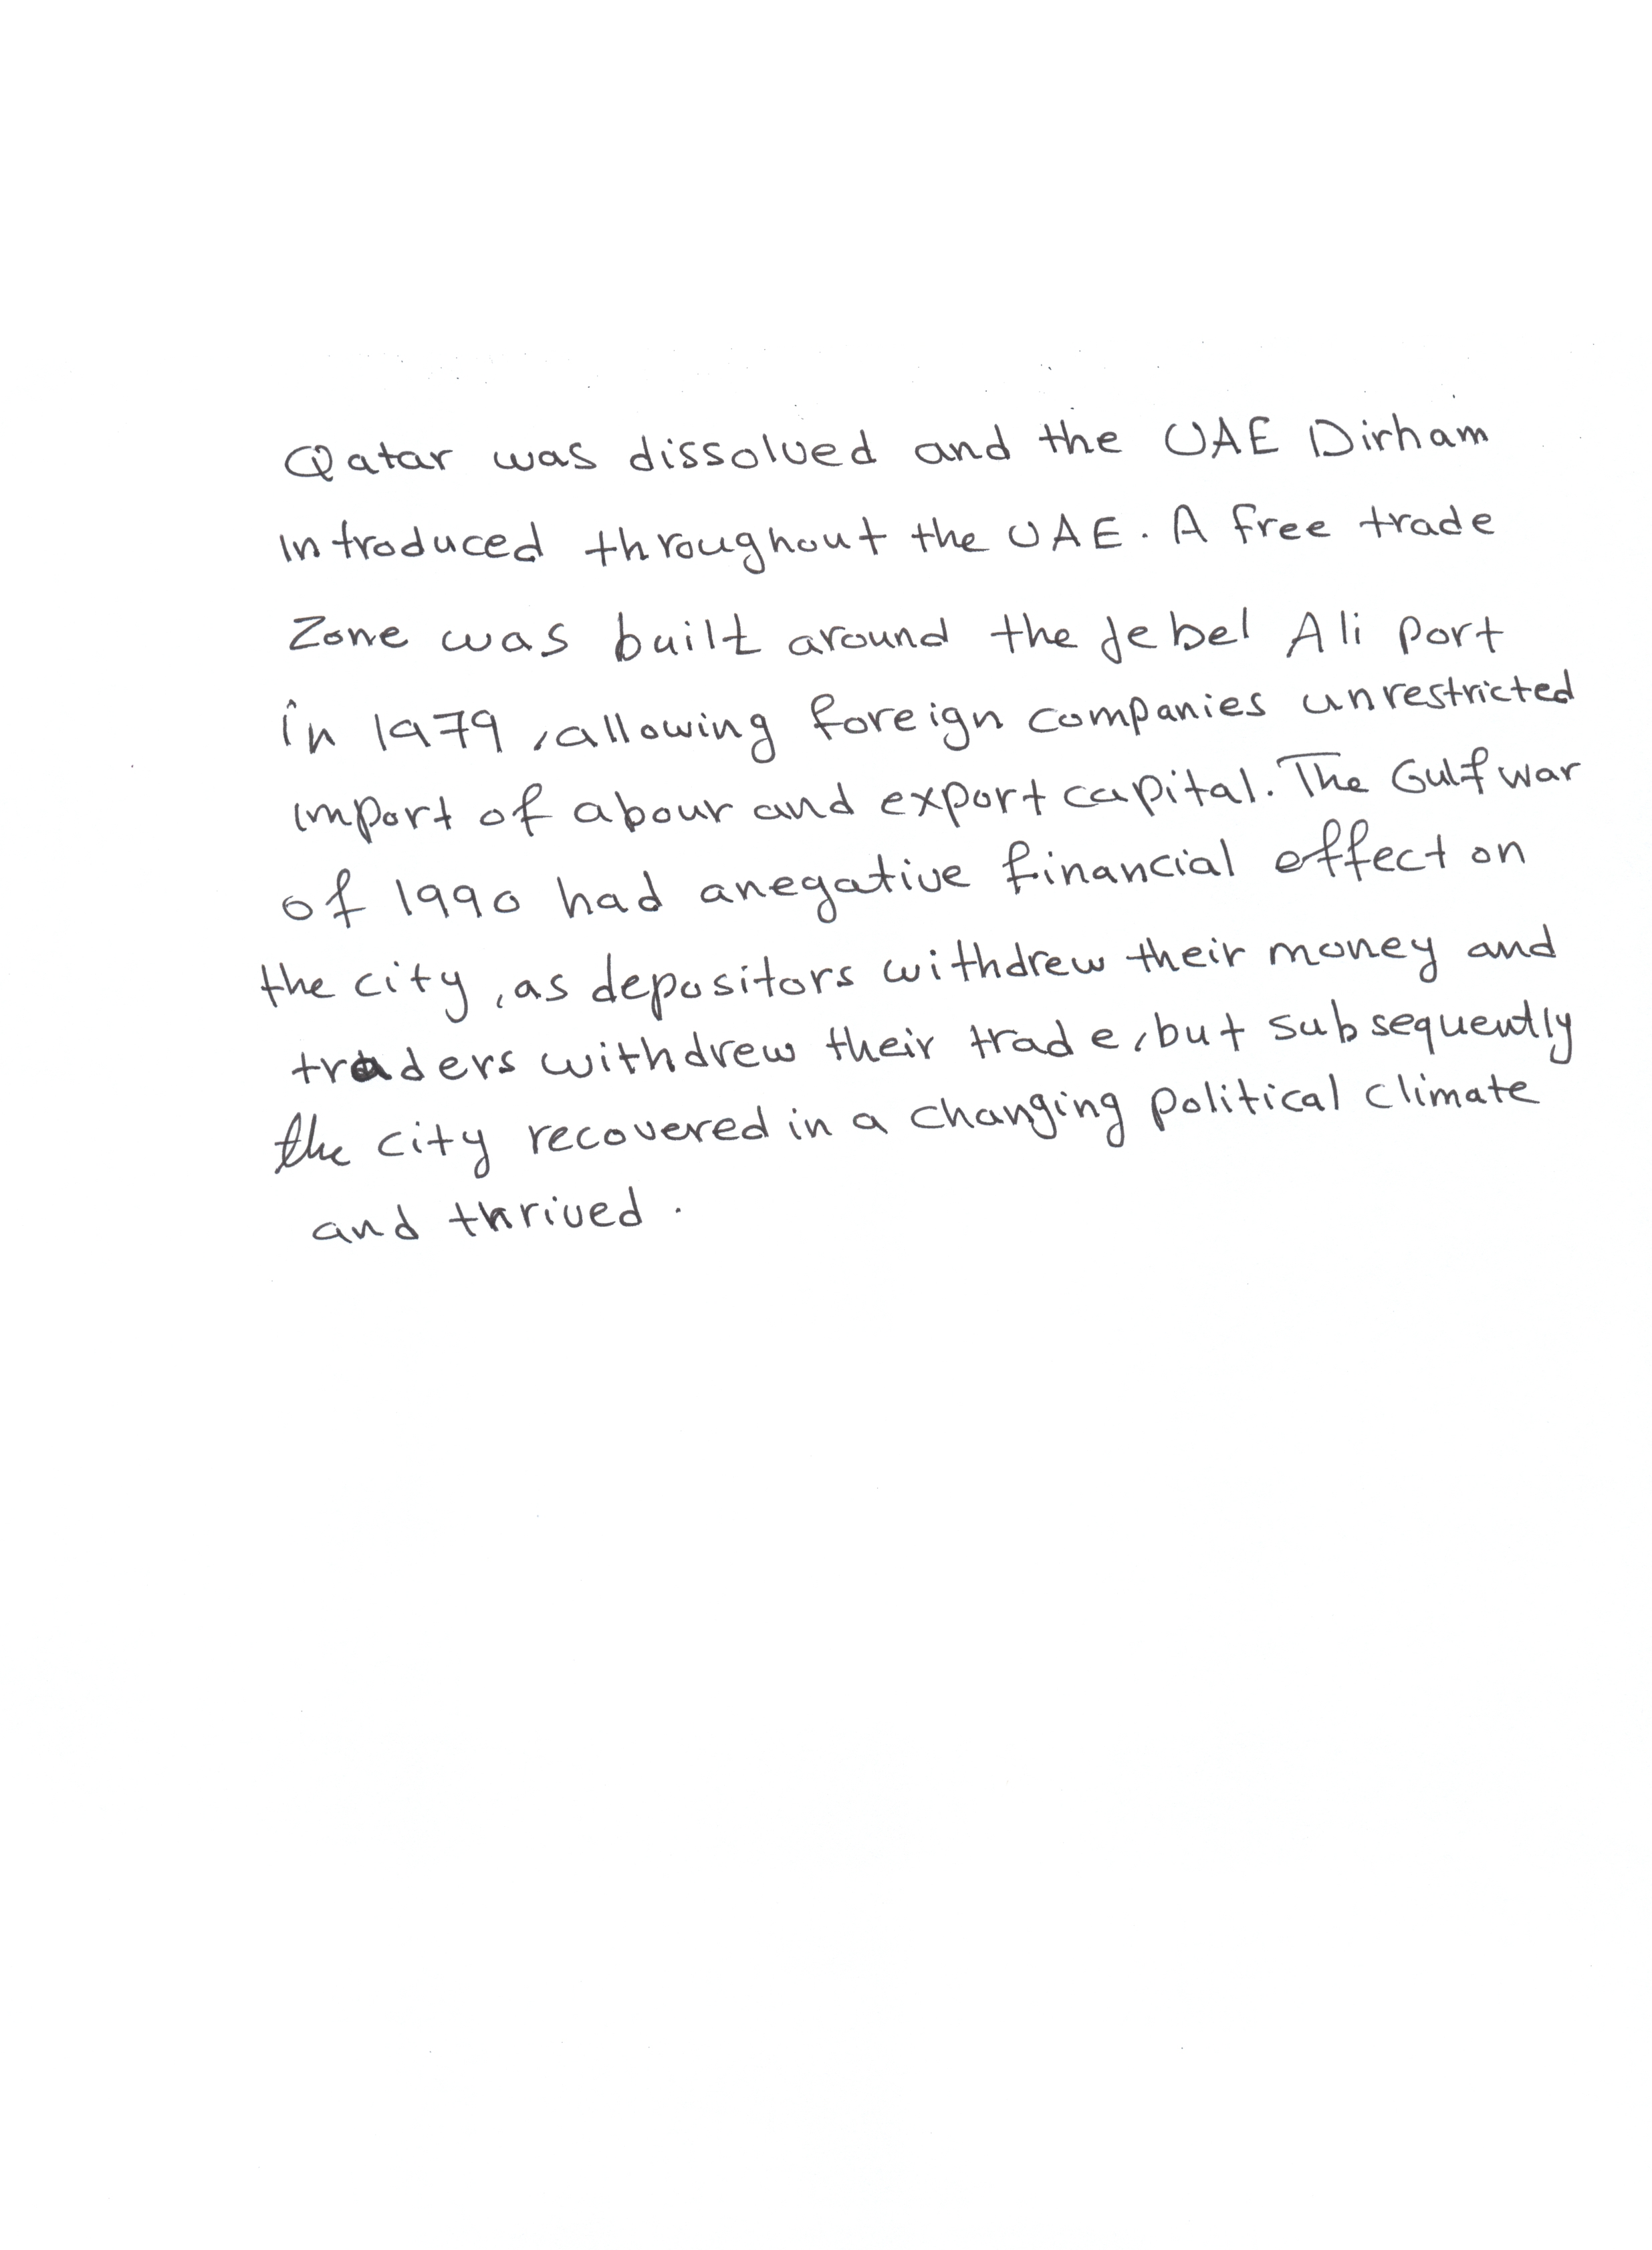 Qatar was dissolved and the UAE Dirham
introduced throughout the UAE. A free trade
Zone was built around the Jebel Ali port
in 1979, allowing foreign companies unrestricted
import of abour and export capital. The Gulf war
of 1990 had anegative financial effect on
the city, as depositors withdrew their money and
traders withdrew their trade, but subsequently
the city recovered in a changing political climate
and thrived.